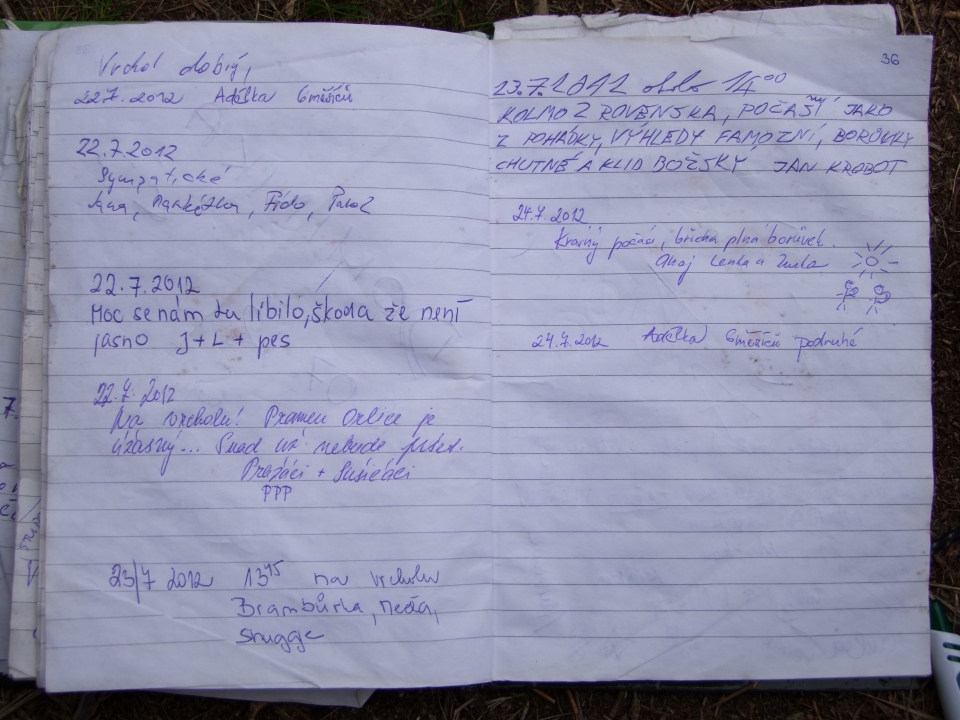 Vrchol dobrý,
22.7.2012 Adélka 6měsíců
22.7.2012
Sympatické
Jana, Markétka, Fído,
22.7.2012
Moc se nám tu líbilo, škoda že není
jasno J + L + pes
22.7.2012
Na vrcholu! Pramen Orlice je
úžasný... Snad už nebude pršet.
Pražáci + Sušičáci
PPP
23/7 2012 13¹⁵ na vrcholu
Brambůrka, Meďa,
Snuggie
36
23.7.2012 okolo 14⁰⁰
KOLMO Z ROVENSKA, POČASÍ JAKO
Z POHÁDKY, VÝHLEDY FAMOZNÍ, BORŮVKY
CHUTNÉ A KLID BOŽSKÝ JAN KROBOT
24.7.2012
Krásný počasí, břicha plná borůvek.
Ahoj Lenka a Zuzka
24.7.2012 Adélka 6měsíců podruhé